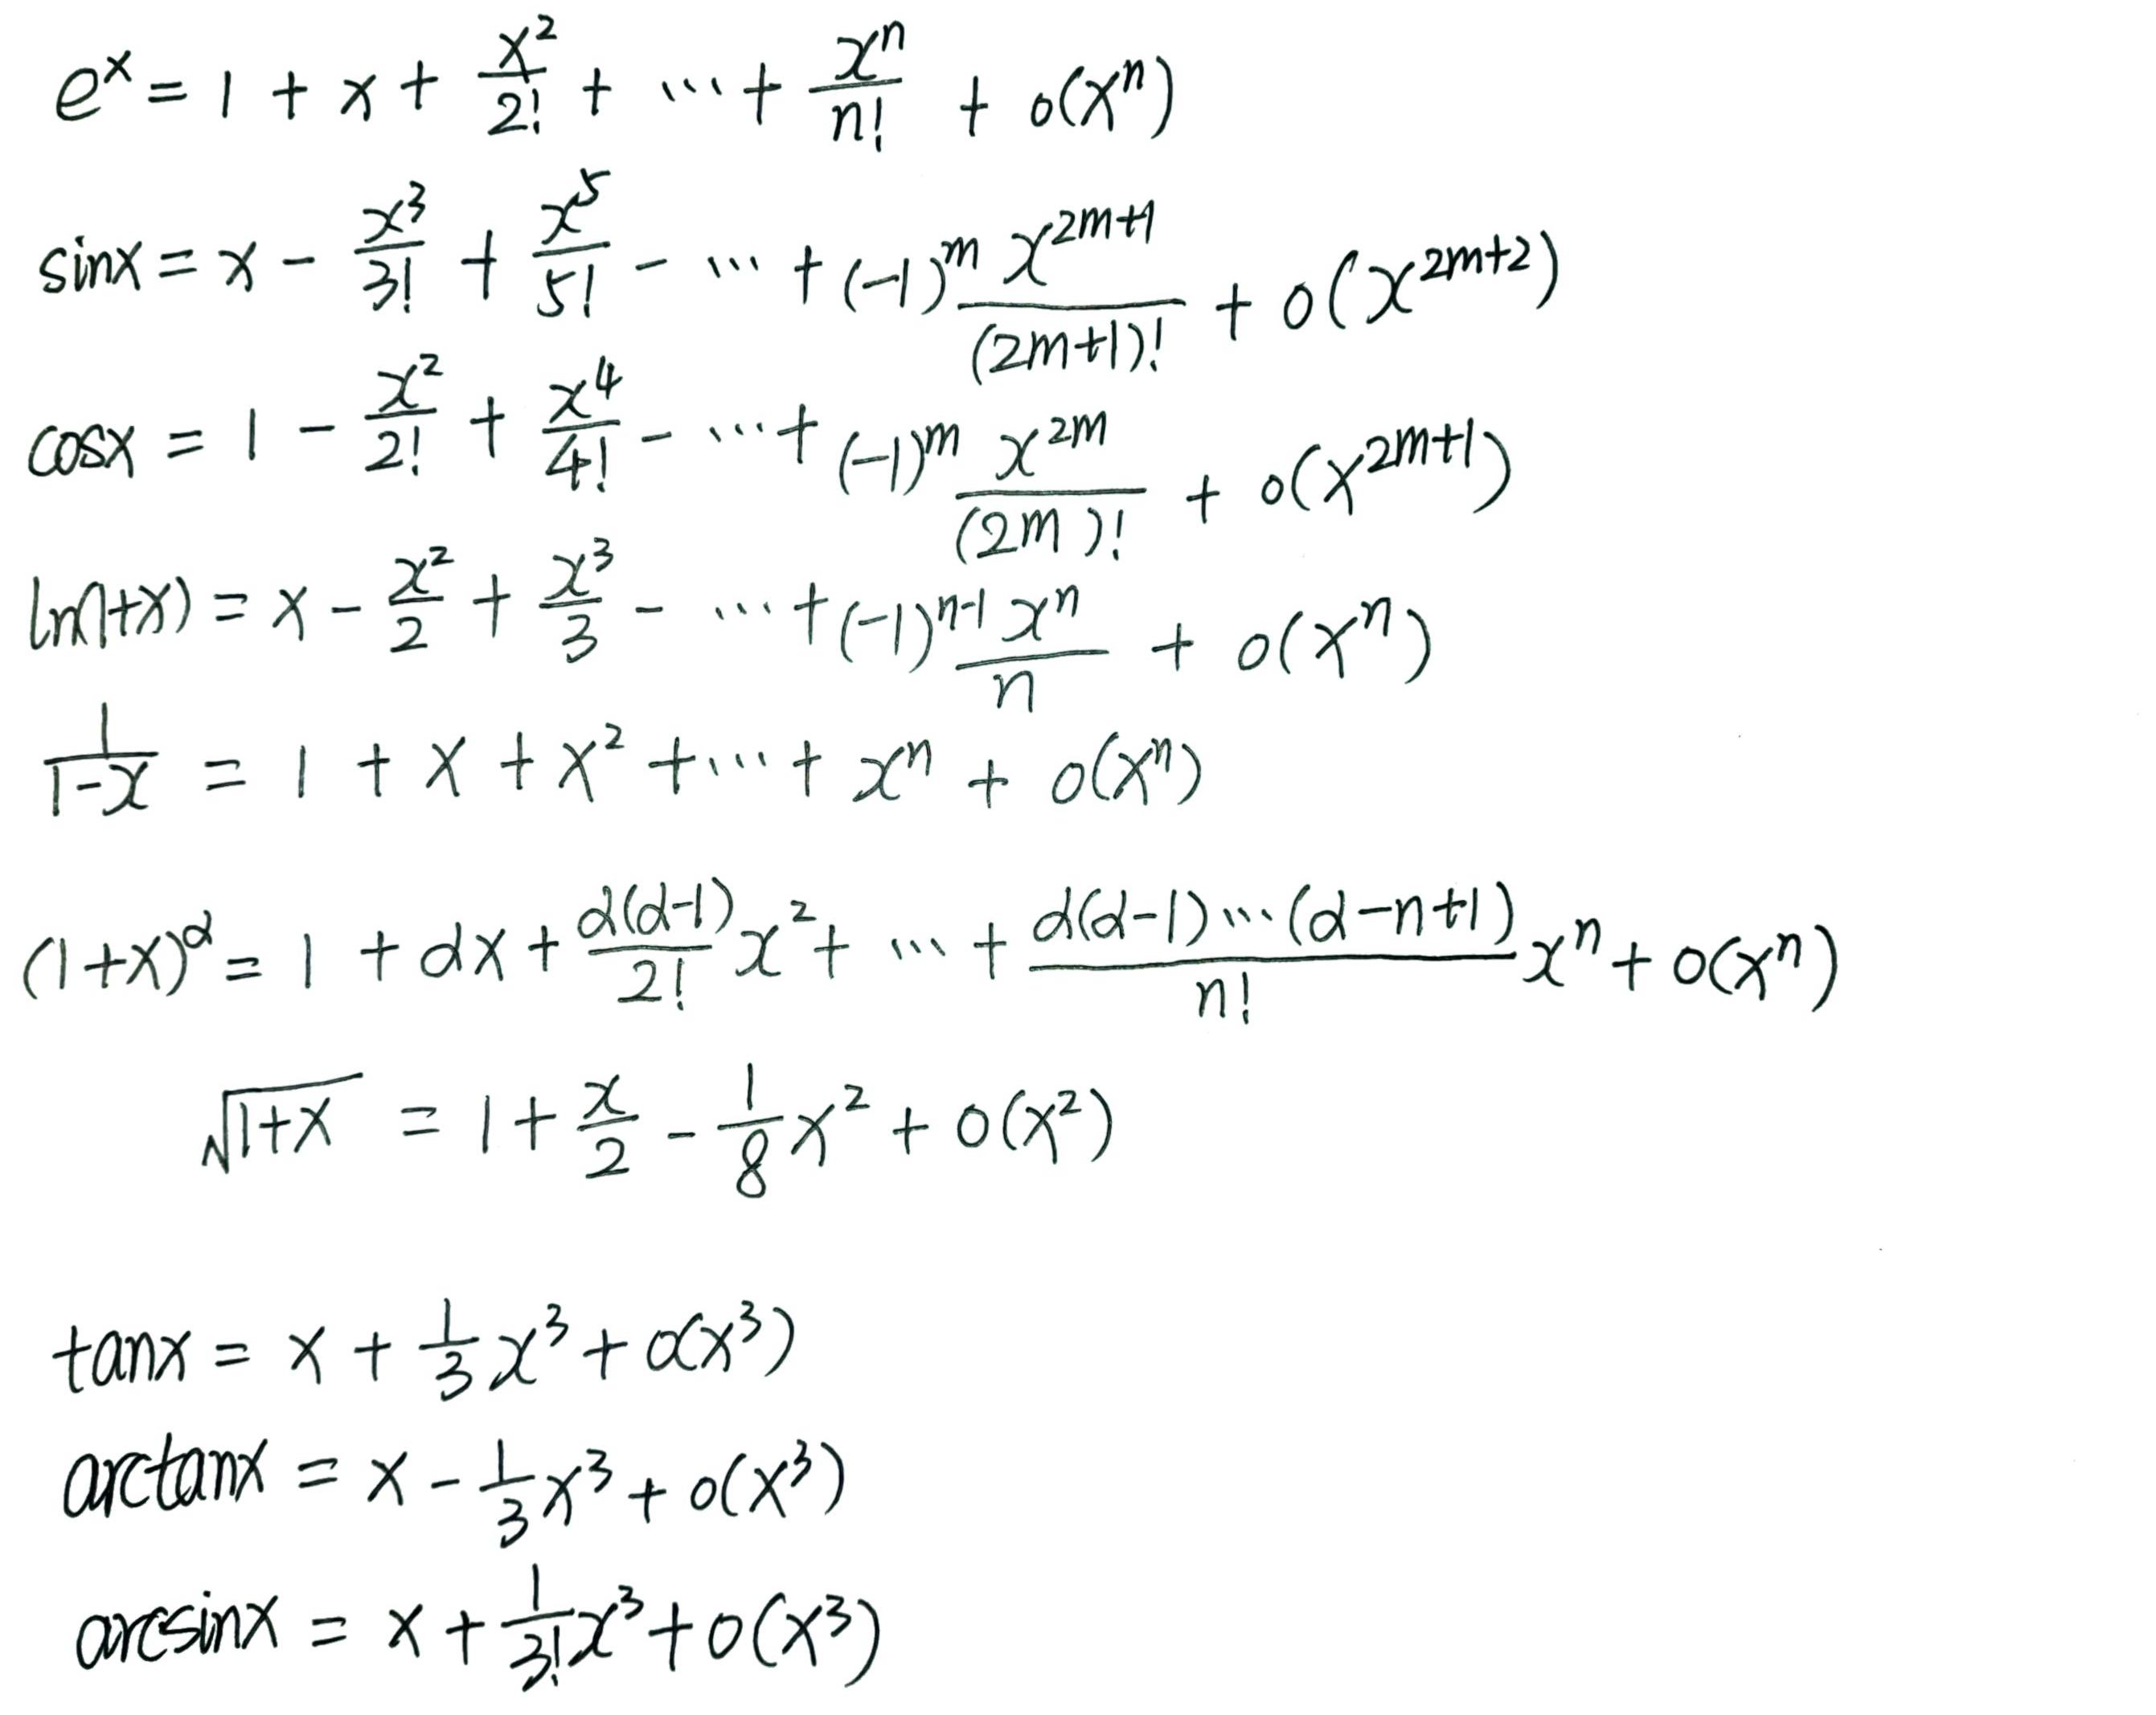 e^x = 1 + x + x^2/2! + ... + x^n/n! + o(x^n)
sinx = x - x^3/3! + x^5/5! - ... + (-1)^m x^(2m+1)/(2m+1)! + o(x^(2m+2))
cosx = 1 - x^2/2! + x^4/4! - ... + (-1)^m x^(2m)/(2m)! + o(x^(2m+1))
ln(1+x) = x - x^2/2 + x^3/3 - ... + (-1)^(n-1) x^n/n + o(x^n)
1/(1-x) = 1 + x + x^2 + ... + x^n + o(x^n)
(1+x)^α = 1 + αx + α(α-1)/2! x^2 + ... + α(α-1)...(α-n+1)/n! x^n + o(x^n)
√(1+x) = 1 + x/2 - 1/8 x^2 + o(x^2)
tanx = x + 1/3 x^3 + o(x^3)
arctanx = x - 1/3 x^3 + o(x^3)
arcsinx = x + 1/3! x^3 + o(x^3)